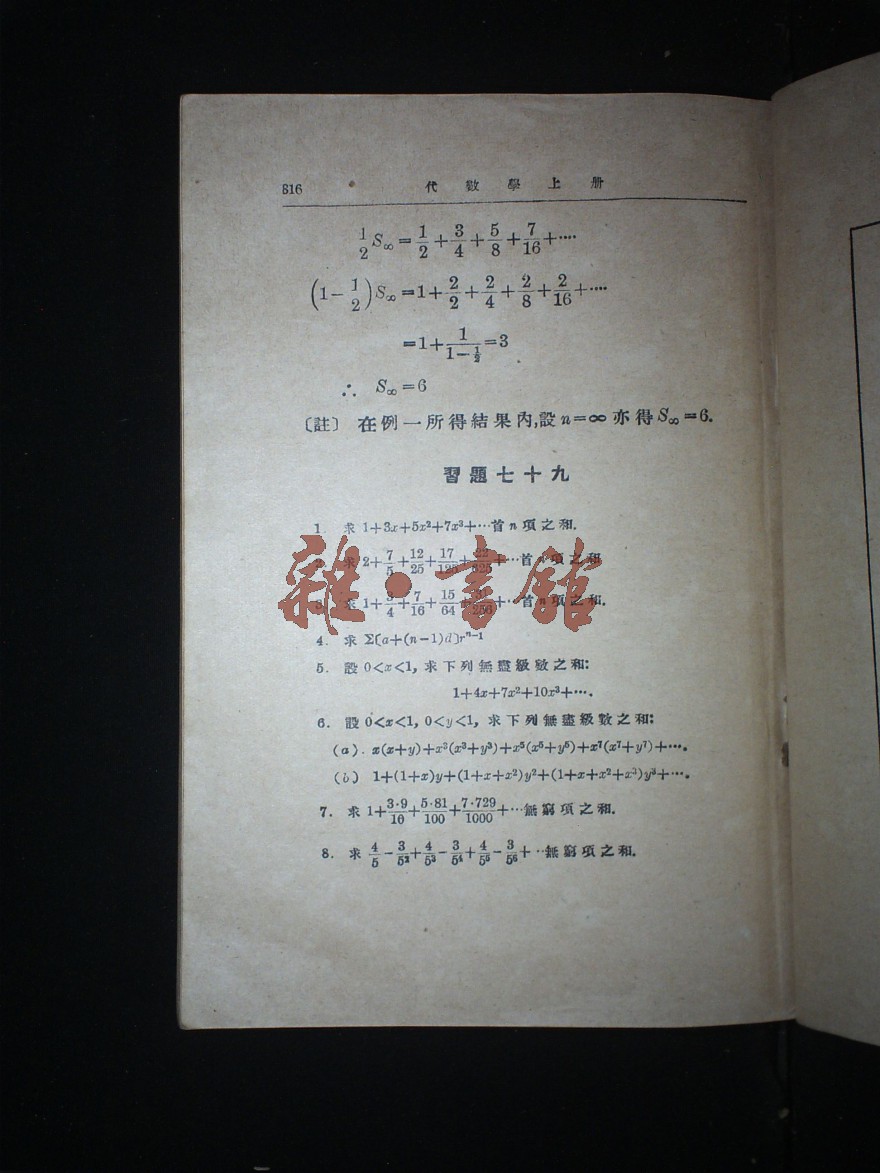 816 代數學上册
1/2 S∞ = 1/2 + 3/4 + 5/8 + 7/16 + ····
(1 - 1/2) S∞ = 1 + 2/2 + 2/4 + 2/8 + 2/16 + ····
= 1 + 1/(1 - 1/2) = 3
∴ S∞ = 6
〔註〕 在例一所得結果內,設 n=∞ 亦得 S∞=6.
習題七十九
1. 求 1+3x+5x²+7x³+···首 n 項之和.
2. 求 2 + 7/5 + 12/25 + 17/125 + 22/625 + ···首 n 項之和
3. 求 1 + 3/4 + 7/16 + 15/64 + 31/256 + ···首 n 項之和.
4. 求 Σ〔a+(n−1)d〕rⁿ⁻¹
5. 設 0<x<1, 求下列無盡級數之和:
1+4x+7x²+10x³+···.
6. 設 0<x<1, 0<y<1, 求下列無盡級數之和:
(a). x(x+y)+x³(x³+y³)+x⁵(x⁵+y⁵)+x⁷(x⁷+y⁷)+···.
(b) 1+(1+x)y+(1+x+x²)y²+(1+x+x²+x³)y³+···.
7. 求 1 + 3·9/10 + 5·81/100 + 7·729/1000 + ···無窮項之和.
8. 求 4/5 − 3/5² + 4/5³ − 3/5⁴ + 4/5⁵ − 3/5⁶ + ··無窮項之和.
雜·書館